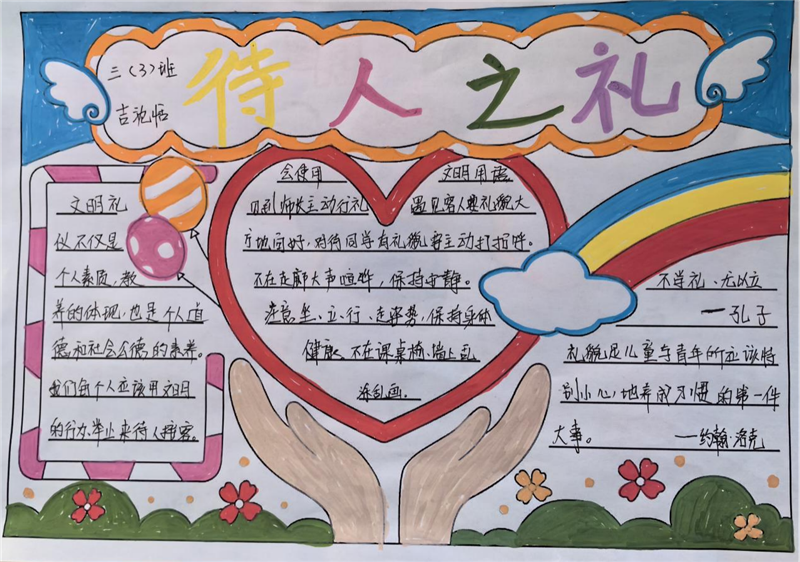 待人之礼
三(3)班
吉祝恬
文明礼
仪不仅是
个人素质,教
养的体现,也是个人道
德和社会公德的素养。
我们每个人应该用文明
的行为举止来待人接客。
会使用 文明用语
见到师长主动行礼 遇见客人要礼貌大
方地问好,对待同学有礼貌要主动打招呼。
不在走廊大声喧哗,保持安静。
注意坐、立、行、走姿势,保持身体
健康 不在课桌椅、墙上乱
涂乱画.
不学礼、无以立
—孔子
礼貌是儿童与青年所应该特
别小心地养成习惯的第一件
大事。 —约翰·洛克